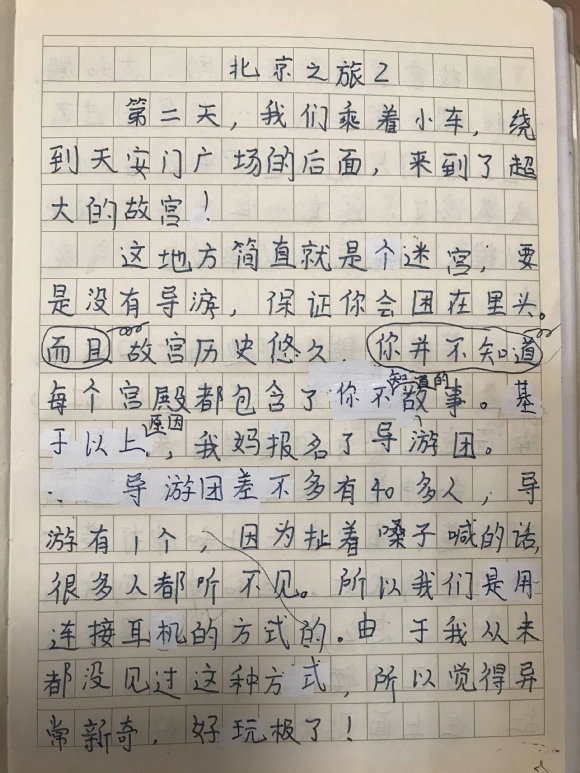 北京之旅2
第二天，我们乘着小车，绕
到天安门广场的后面，来到了超
大的故宫！
这地方简直就是个迷宫，要
是没有导游，保证你会困在里头。
而且故宫历史悠久．你并不知道
每个宫殿都包含了你不知道的故事。基
于以上原因，我妈报名了导游团。
导游团差不多有40多人，导
游有1个，因为扯着嗓子喊的话，
很多人都听不见。所以我们是用
连接耳机的方式的。由于我从来
都没见过这种方式，所以觉得异
常新奇，好玩极了！